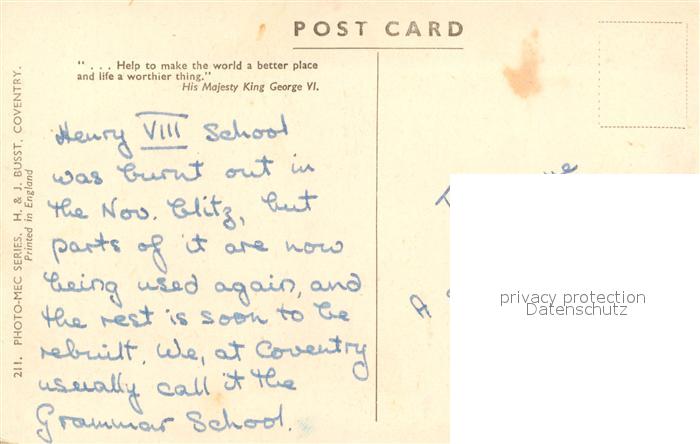 POST CARD
". . . Help to make the world a better place
and life a worthier thing."
His Majesty King George VI.
Henry VIII School
was burnt out in
the Nov. blitz, but
parts of it are now
being used again, and
the rest is soon to be
rebuilt. We, at Coventry
usually call it the
Grammar School.
211. PHOTO-MEC SERIES. H. & J. BUSST, COVENTRY.
Printed in England
A
privacy protection
Datenschutz